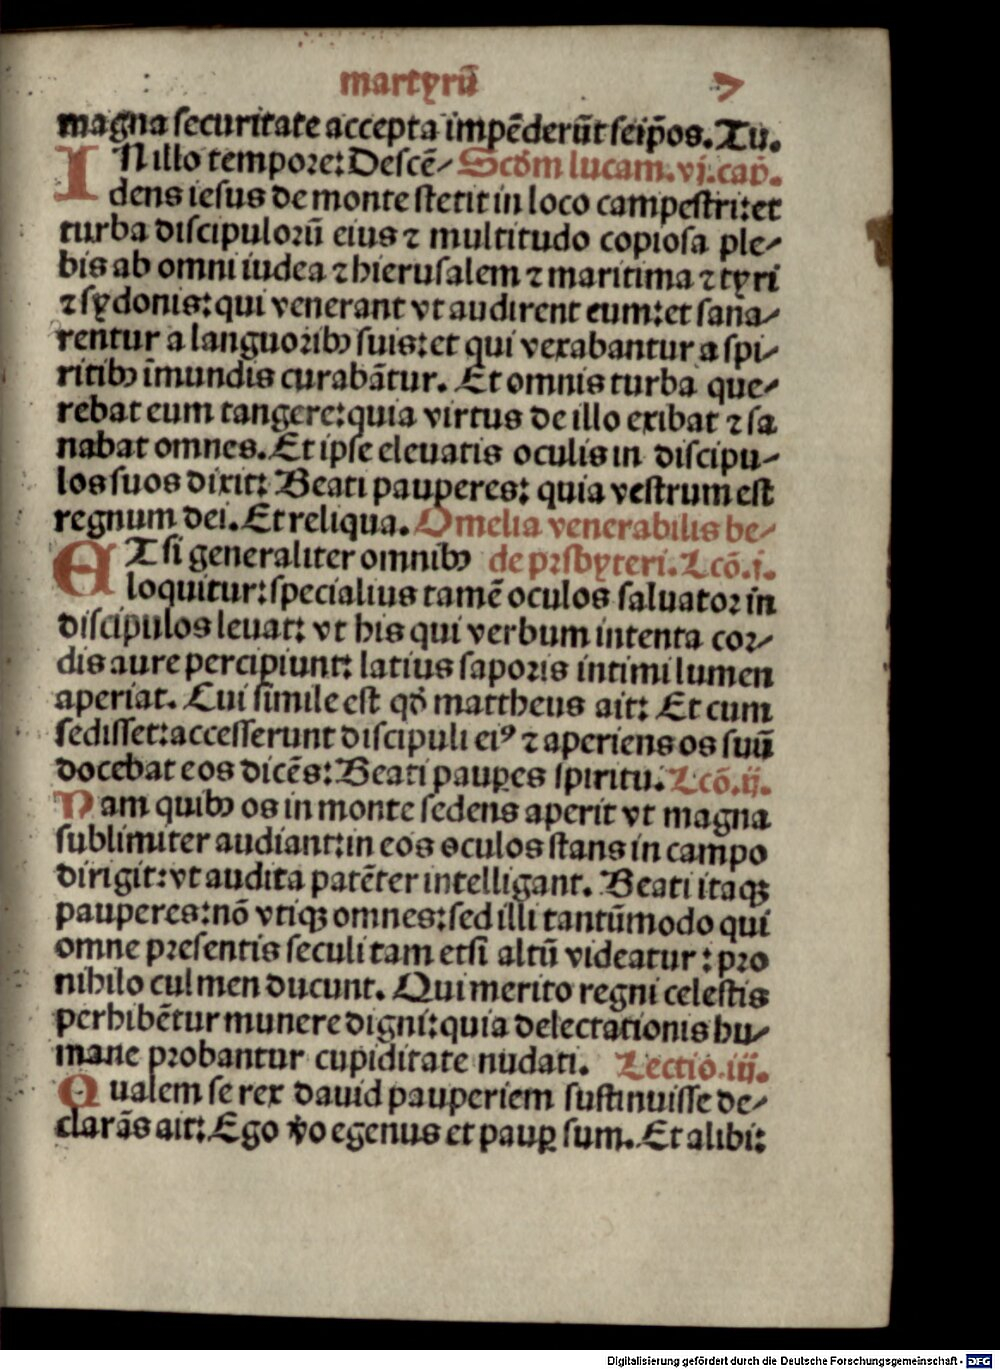 martyrū 7
magna securitate accepta impēderūt seip̄os. Tu.
IN illo tempore: Descē- Scd̄m lucam. vj. cap̄.
dens iesus de monte stetit in loco campestri: et
turba discipulorū eius ⁊ multitudo copiosa ple-
bis ab omni iudea ⁊ hierusalem ⁊ maritima ⁊ tyri
⁊ sydonis: qui venerant vt audirent eum: et sana-
rentur a languoribꝰ suis: et qui vexabantur a spi-
ritibꝰ īmundis curabātur. Et omnis turba que-
rebat eum tangere: quia virtus de illo exibat ⁊ sa
nabat omnes. Et ipse eleuatis oculis in discipu-
los suos dixit: Beati pauperes: quia vestrum est
regnum dei. Et reliqua. Omelia venerabilis be-
ETsi generaliter omnibꝰ de prsbyteri. Lcō. j.
loquitur: specialius tamē oculos saluator in
discipulos leuat: vt his qui verbum intenta cor-
dis aure percipiunt: latius saporis intimi lumen
aperiat. Cui simile est qd̄ mattheus ait: Et cum
sedisset: accesserunt discipuli eiꝰ ⁊ aperiens os suū
docebat eos dicēs: Beati paupꝑes spiritu. Lcō. ij.
Nam quibꝰ os in monte sedens aperit vt magna
sublimiter audiant: in eos oculos stans in campo
dirigit: vt audita patēter intelligant. Beati itaqꝫ
pauperes: nō vtiqꝫ omnes: sed illi tantūmodo qui
omne presentis seculi tam etsi altū videatur: pro
nihilo culmen ducunt. Qui merito regni celestis
perhibētur munere digni: quia delectationis hu-
mane probantur cupiditate nudati. Lectio. iij.
Qualem se rex dauid pauperiem sustinuisse de-
clarās ait: Ego v̄o egenus et paup̱ sum. Et alibi:
Digitalisierung gefördert durch die Deutsche Forschungsgemeinschaft - DFG